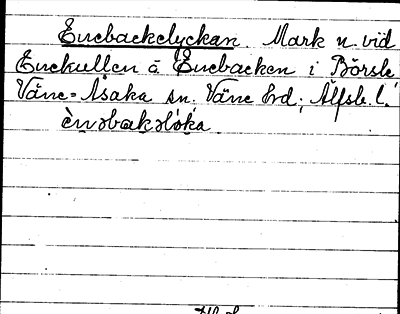 Enebackelyckan. Mark n. vid
Enekullen å Enebacken i Börsle
Väne-Åsaka sn. Väne hd; Älfsb. l.
ènəbakəlỏka